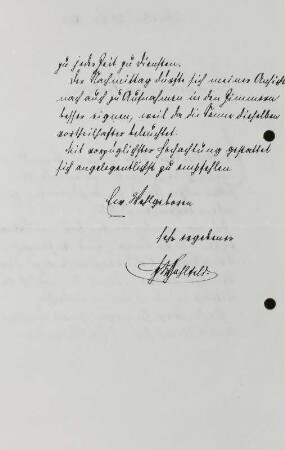 zu jeder Zeit zu Diensten.
Der Nachmittag dürfte sich meiner Ansicht
nach auch zu Aufnahmen in den Zimmern
besser eignen, weil da die Sonne dieselben
vortheilhafter beleuchtet.
Mit vorzüglichster Hochachtung gestattet
sich angelegentlichst zu empfehlen
Ew. Wohlgeboren
sehr ergebener